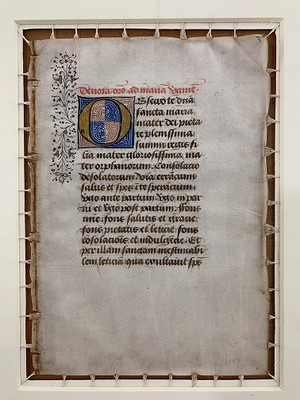 Deuota oro ad maria
Obsecro te dna
sancta maria
mater dei pieta
te plenissima
summi regis fi
lia mater gloriosissima, ma
ter orphanorum Consolatio
desolatorum Via errāciū
salus et spes ī te sperāciū.
Vgo ante partum Vgo in par
tu et Vgo post partum Fons
mīe. fons salutis et gracie
fons pietatis et leticie. fons
cōsolacōis et indulgēcie. Et
per illam sanctam inestimabi
lem leticiā qua exultauit sps